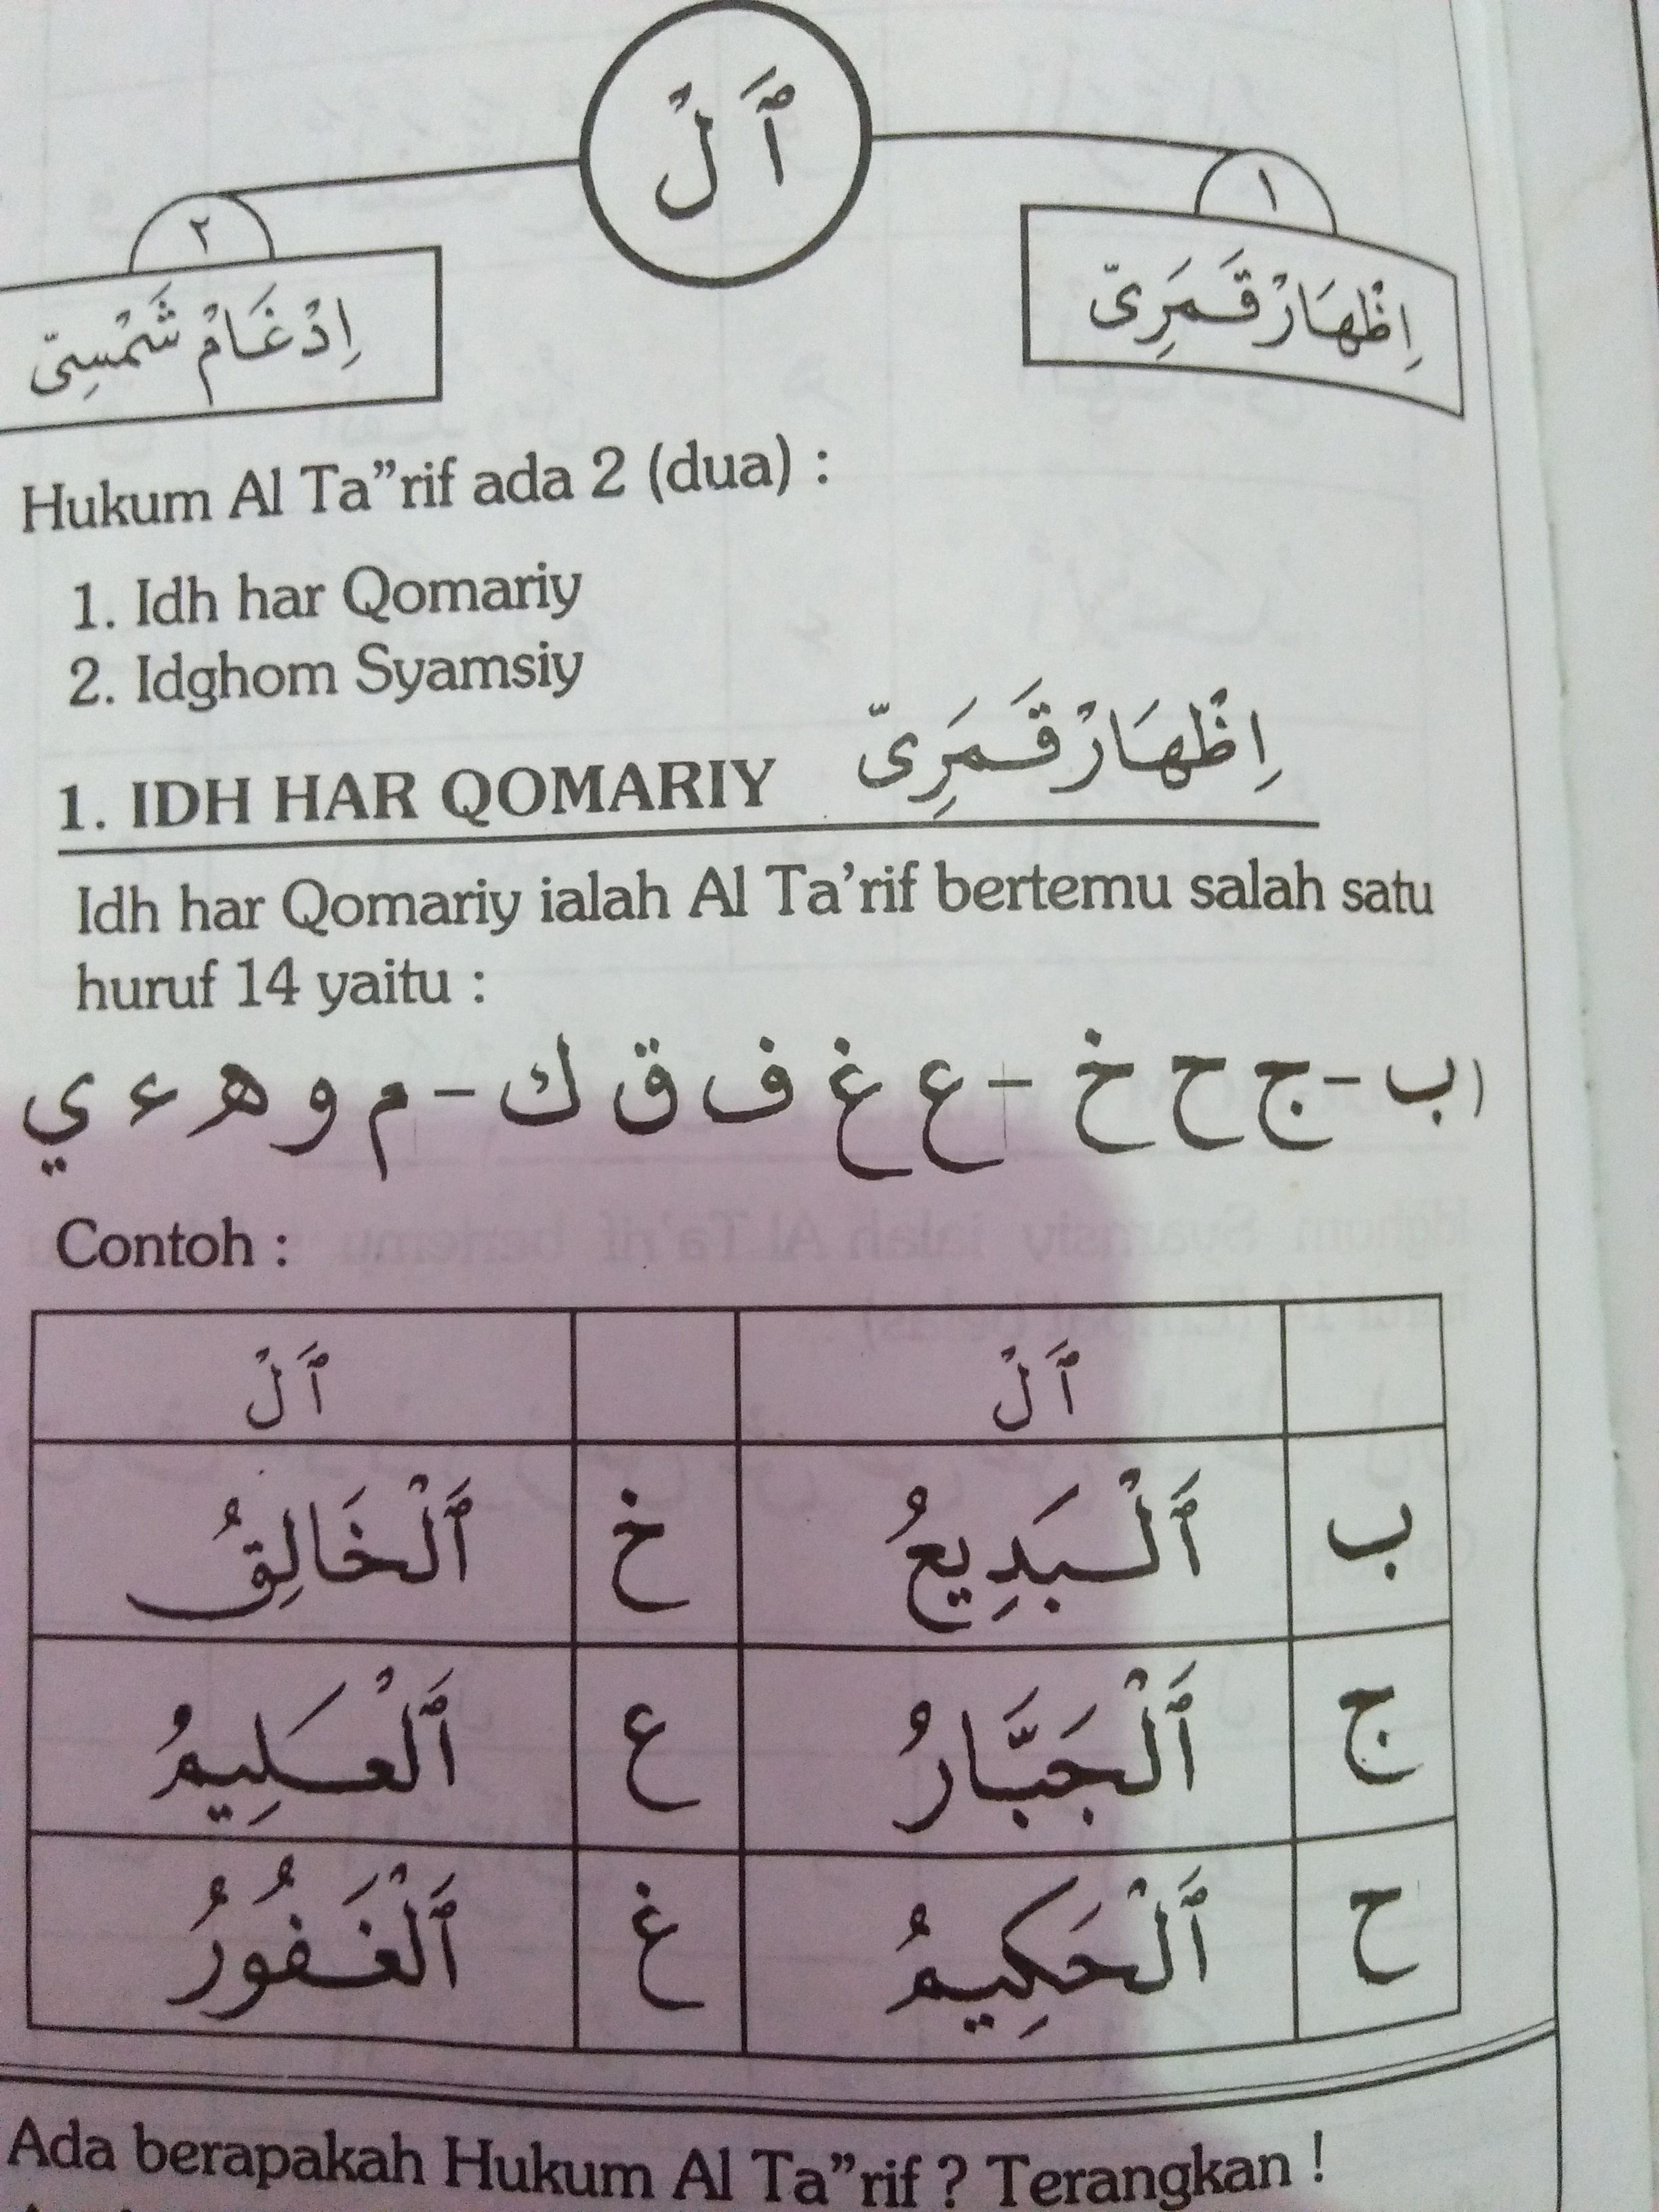 اَلْ
١
اِظْهَارْ قَمَرِىّ
٢
اِدْغَامْ شَمْسِىّ
Hukum Al Ta”rif ada 2 (dua) :
1. Idh har Qomariy
2. Idghom Syamsiy
1. IDH HAR QOMARIY اِظْهَارْ قَمَرِىّ
Idh har Qomariy ialah Al Ta’rif bertemu salah satu
huruf 14 yaitu :
ا ب - ج ح خ - ع غ ف ق ك - م و ه ء ي
Contoh :
اَلْ اَلْ
ب اَلْبَدِيعُ خ اَلْخَالِقُ
ج اَلْجَبَّارُ ع اَلْعَلِيمُ
ح اَلْحَكِيمُ غ اَلْغَفُورُ
Ada berapakah Hukum Al Ta”rif ? Terangkan !